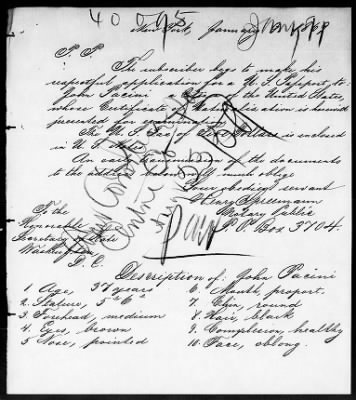 40005
New York, January 1869
The subscriber begs to make his
respectful application for a U. S. Passport, to
John Pacini a Citizen of the United States
whose Certificate of Naturalization is herewith
presented for examination.
The U. S. Tax of Five Dollars is enclosed
in U. S.
An early transmission of the documents
to the address below will much oblige
Your obedient servant
Henry Spellmann
Notary Public
P. O. Box 3704.
To the
Honorable
Secretary of State
Washington
D. C.
Description of: John Pacini
1. Age, 37 years
2. Stature, 5 " 6 "
3. Forehead, medium
4. Eyes, brown
5. Nose, pointed
6. Mouth, proport.
7. Chin, round
8. Hair, black
9. Complexion, healthy
10. Face, oblong.